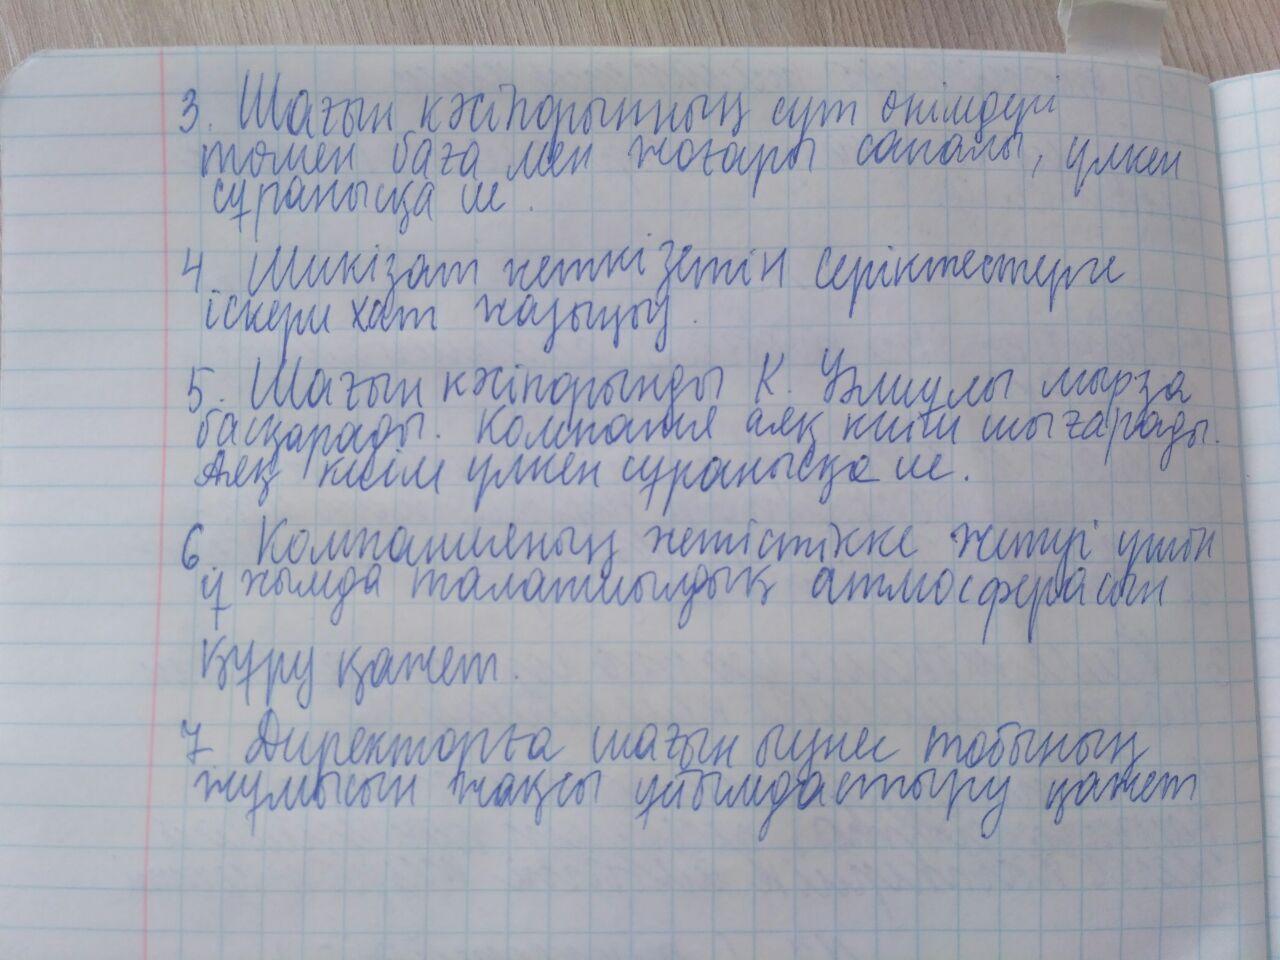 3. Шағын кәсіпорынның сүт өнімдері
төмен баға мен жоғары сапалы, үлкен
сұранысқа ие.
4. Шикізат жеткізетін серіктестерге
іскери хат жазыңыз.
5. Шағын кәсіпорынды К. Уәлиұлы мырза
басқарады. Компания аяқ киім шығарады.
Аяқ киім үлкен сұранысқа ие.
6. Компанияның жетістікке жетуі үшін
ұжымда талапшылдық атмосферасын
құру қажет.
7. Директорға шағын бизнес тобының
жұмысын жақсы ұйымдастыру қажет